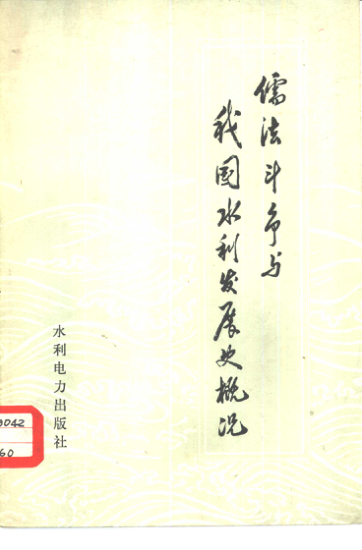 儒法斗争与
我国水利发展史概况
水利电力出版社
9042
60